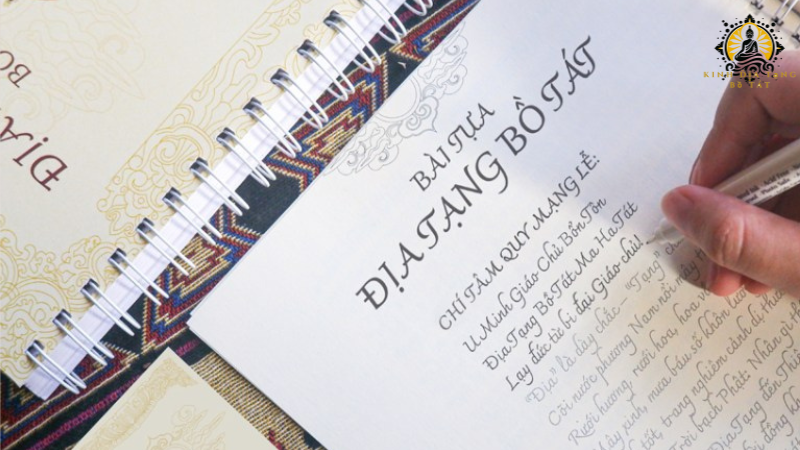 ĐỊA
BỒ
BÀI TỰA
ĐỊA TẠNG BỒ TÁT
CHÍ TÂM QUY MẠNG LỄ:
U Minh Giáo Chủ Bổn Tôn
Địa Tạng Bồ Tát Ma Ha Tát
Lạy đức từ bi đại Giáo chủ!
"Địa" là dày chắc "Tạng"
Cõi nước phương Nam nổi mây
Rưới hương, rưới hoa, hoa
Mây xinh, mưa báu số khôn
tốt, trang nghiêm cảnh dị,
Trời bạch Phật: Nhân gì
Địa Tạng đến
KINH ĐỊA TẠNG
BỒ TÁT